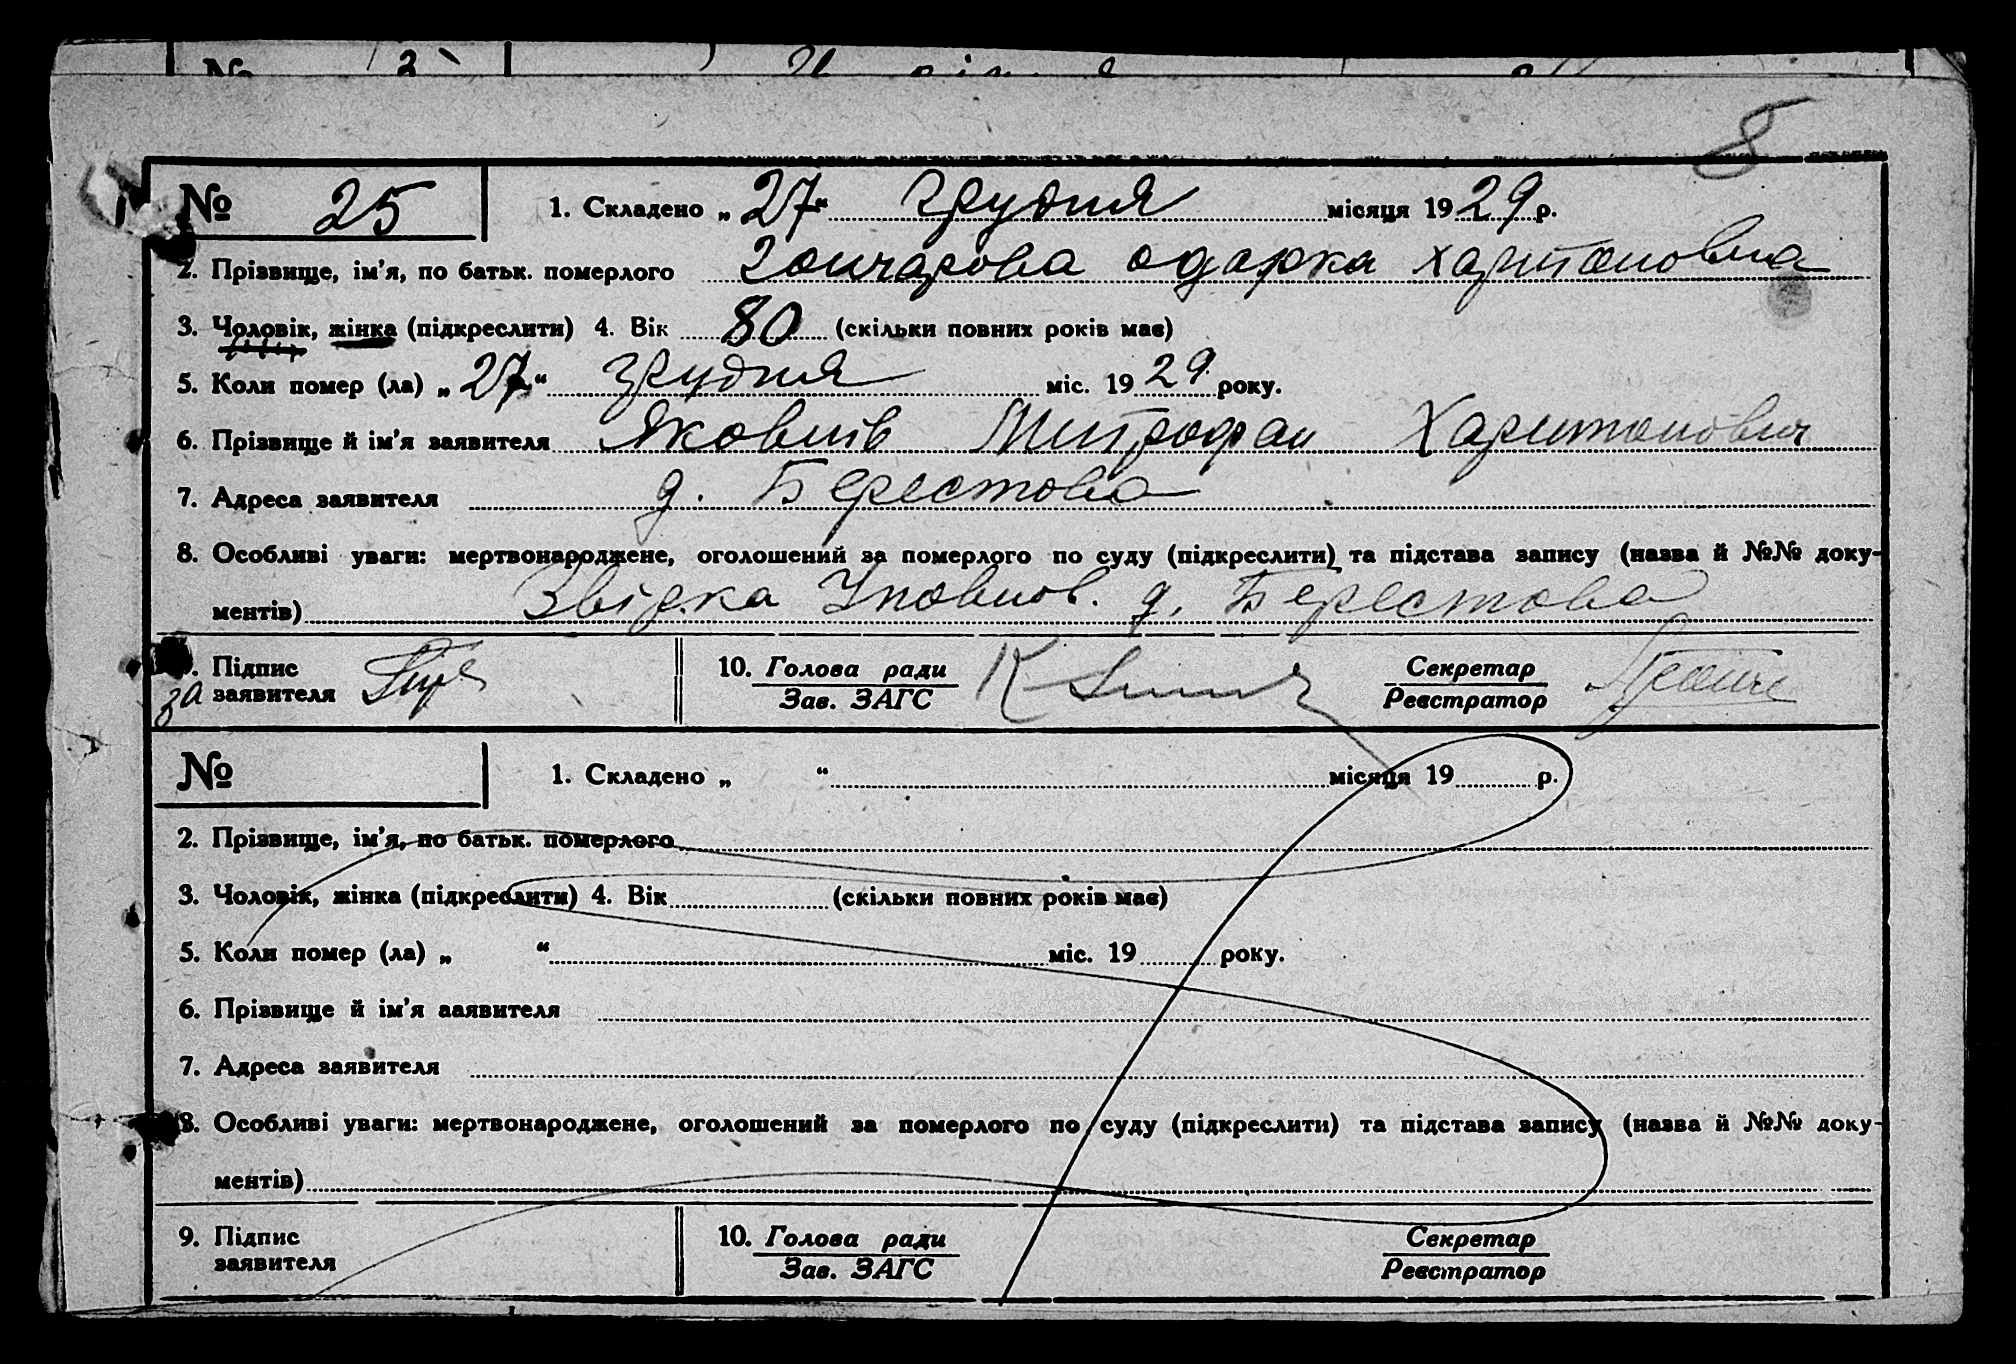 8
№ 25 1. Складено „27“ грудня місяця 1929 р.
2. Прізвище, ім’я, по батьк. померлого Гончарова Одарка Харитоновна
3. Чоловік, жінка (підкреслити) 4. Вік 80 (скільки повних років має)
5. Коли помер (ла) „27“ грудня міс. 1929 року.
6. Прізвище й ім’я заявителя Яковлів Митрофан Харитонович
7. Адреса заявителя д. Берестова
8. Особливі уваги: мертвонароджене, оголошений за померлого по суду (підкреслити) та підстава запису (назва й №№ доку-
ментів) Звідка Уповнов. д. Берестова
Підпис 10. Голова ради Секретар
за заявителя Зав. ЗАГС Реєстратор
№ 1. Складено „ “ місяця 19 р.
2. Прізвище, ім’я, по батьк. померлого
3. Чоловік, жінка (підкреслити) 4. Вік (скільки повних років має)
5. Коли помер (ла) „ “ міс. 19 року.
6. Прізвище й ім’я заявителя
7. Адреса заявителя
8. Особливі уваги: мертвонароджене, оголошений за померлого по суду (підкреслити) та підстава запису (назва й №№ доку-
ментів)
9. Підпис 10. Голова ради Секретар
заявителя Зав. ЗАГС Реєстратор